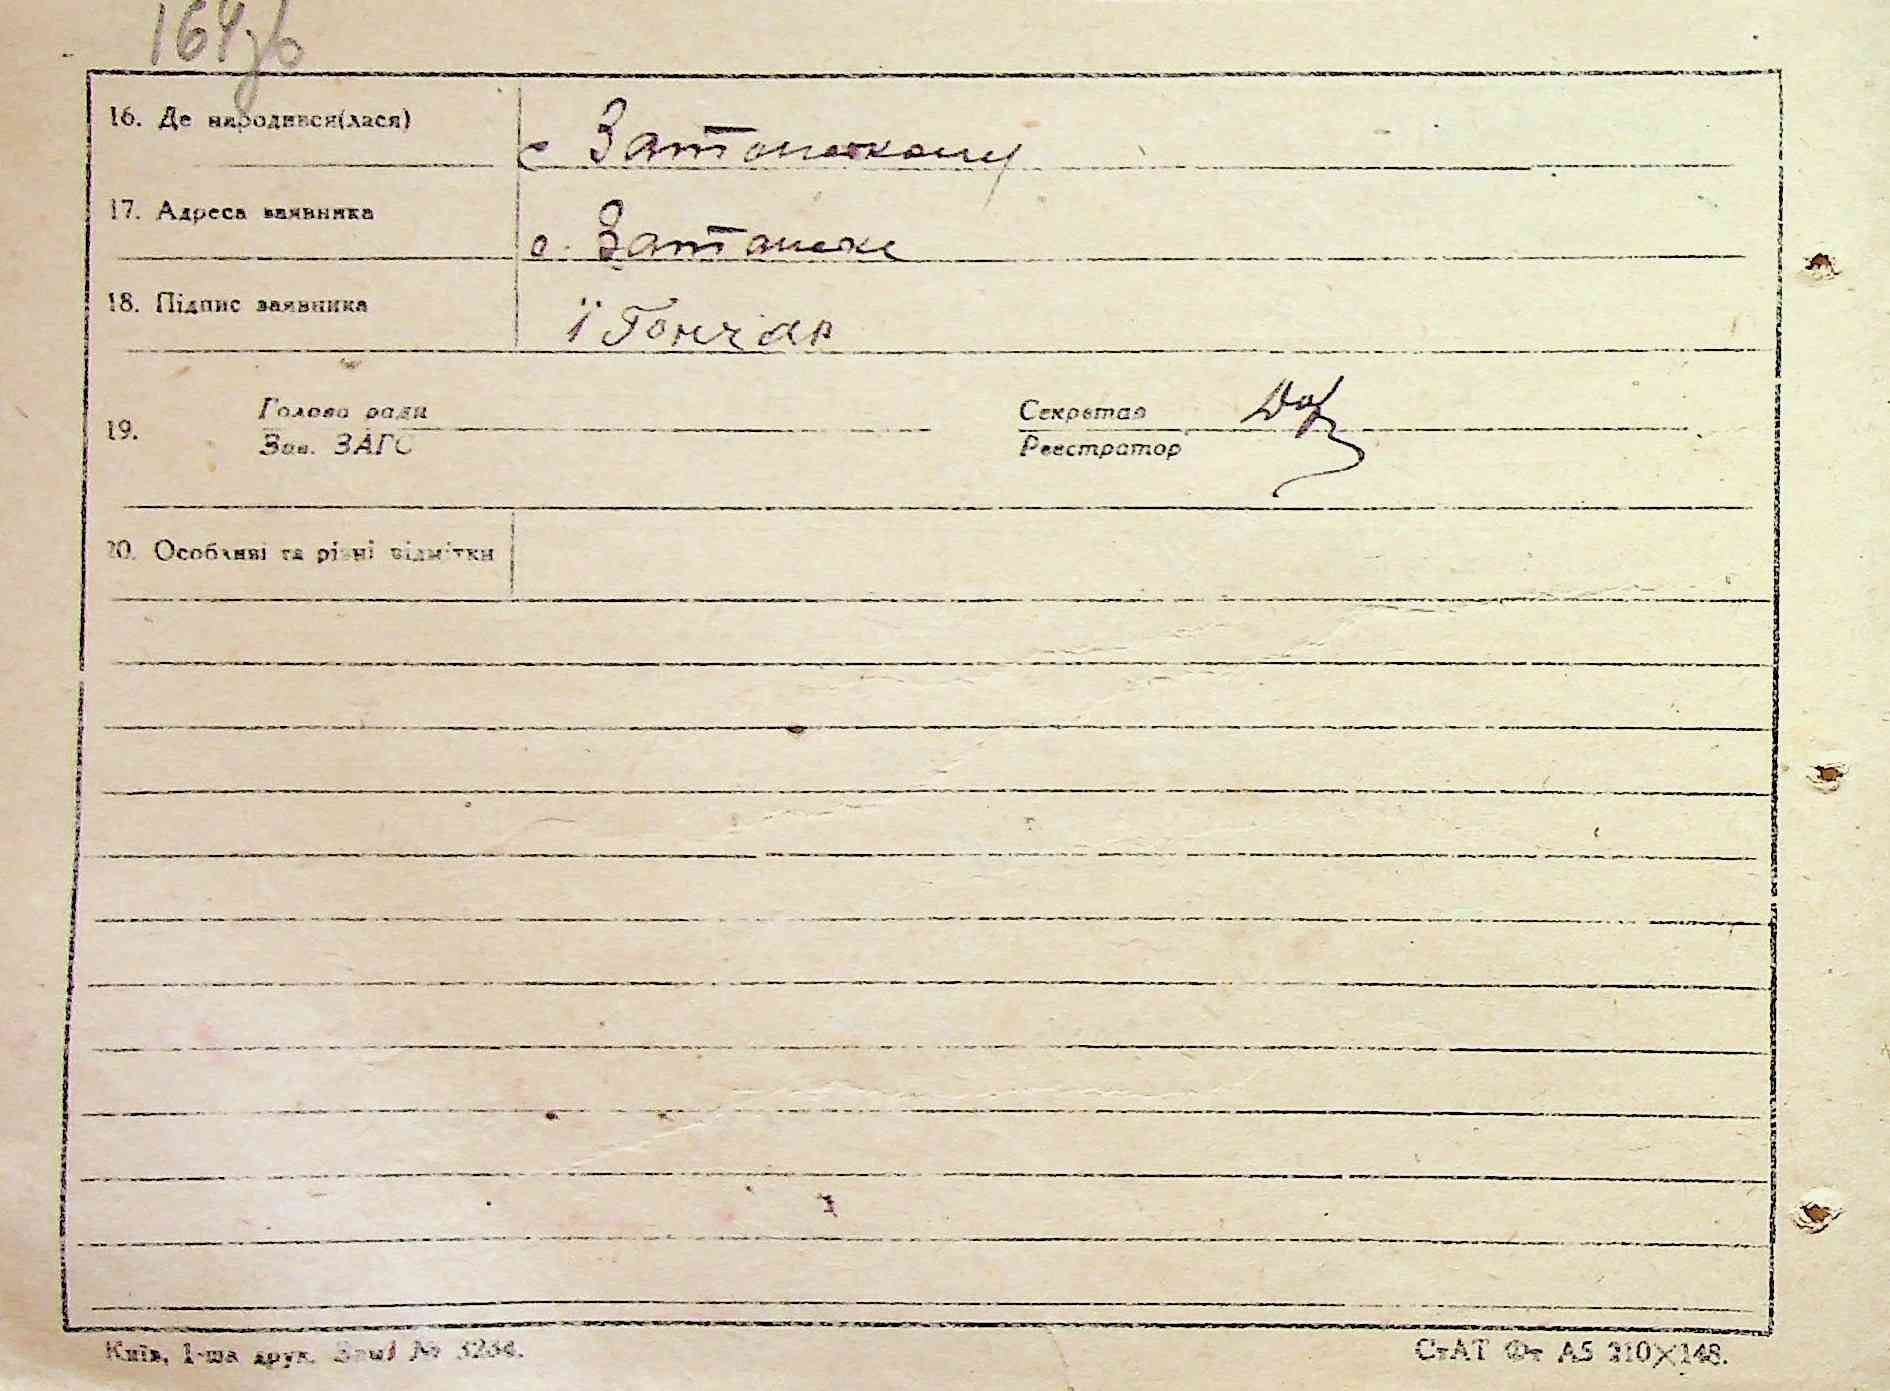 164зв
16. Де народився(лася) с Затонському
17. Адреса заявника с. Затонске
18. Підпис заявника ї Гончар
19. Голова ради Секретар
Зав. ЗАГС Реєстратор
20. Особливі та різні відмітки
Київ, 1-ша друк. Зам. № 3264.
СтАТ Фт А5 210×148.